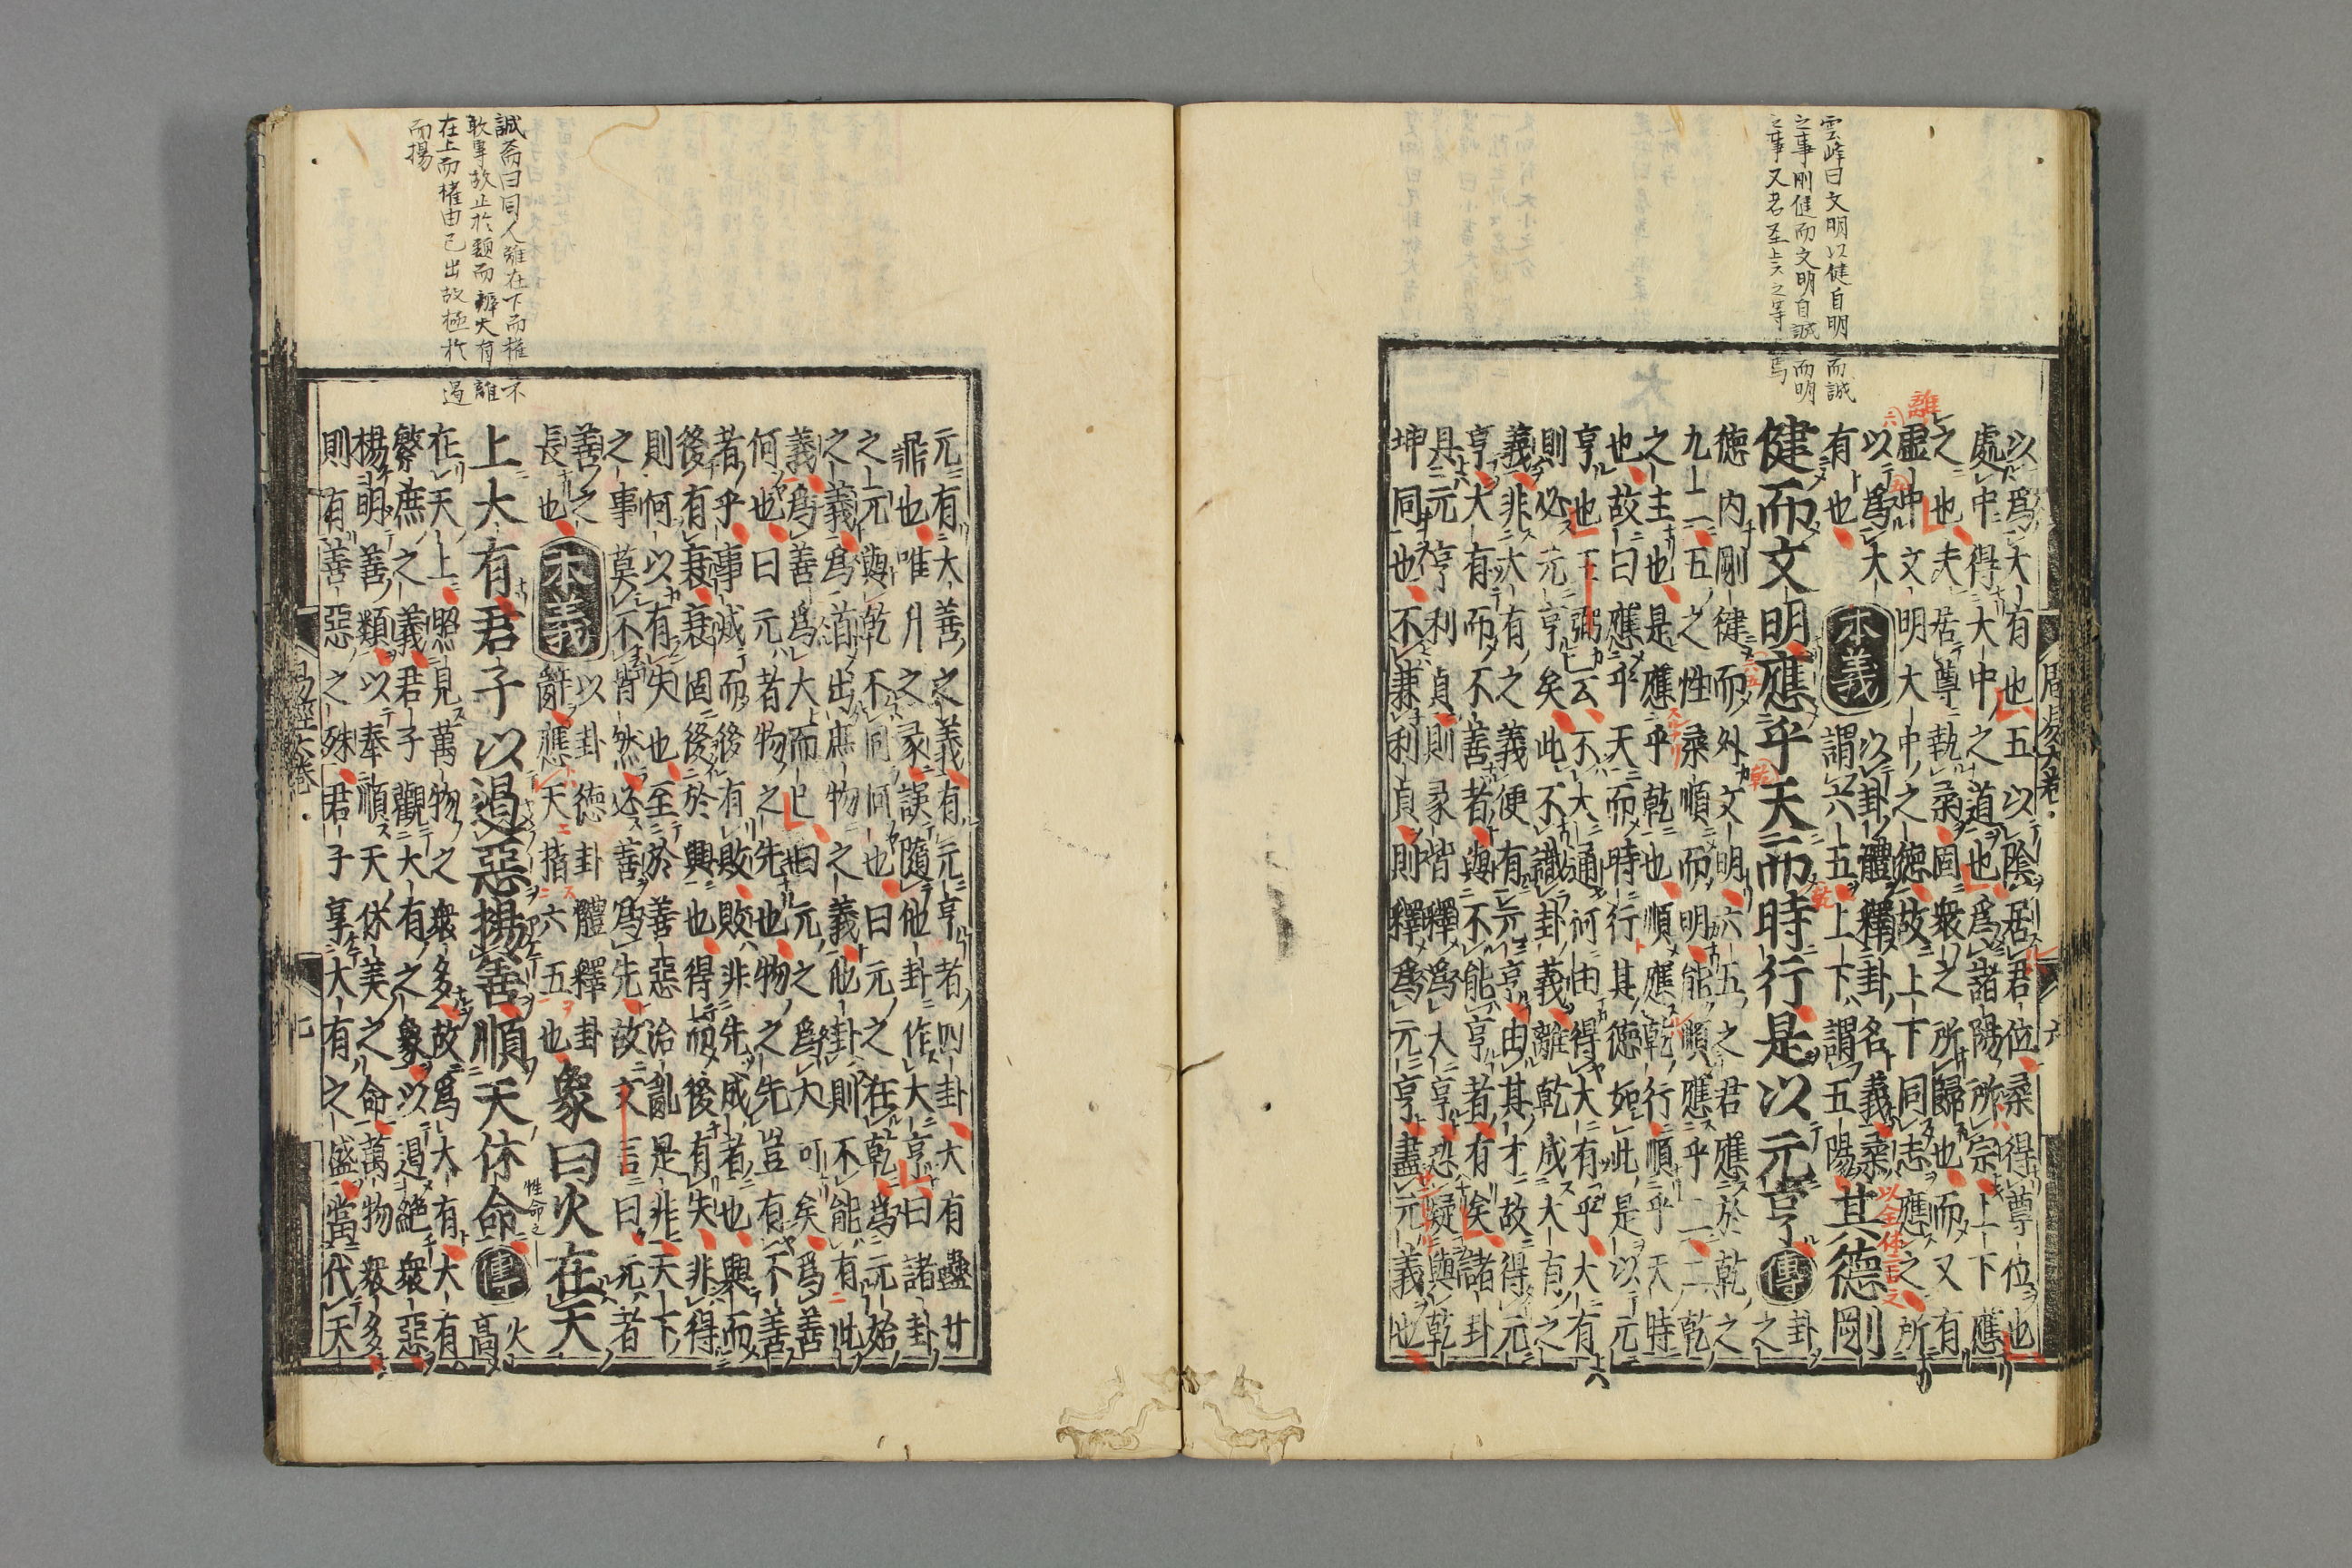 雲峰曰文明以健自明而誠
之事剛健而文明自誠而明
之事又君至上
以爲大有也五以陰居君位柔得尊位也
處中得大中之道也爲諸陽所宗上下應
之也夫居尊執柔固衆之所歸也而又有
虛中文明大中之德故上下同志應之所
以爲大
有也
本義
以卦體釋卦名義柔
謂六五上下謂五陽
其德剛
健而文明應乎天而時行是以元亨
傳
卦
之
德內剛健而外文明六五之君應於乾之
九二五之性柔順而明能順應乎二二乾
之主也是應乎乾也順應乾行順乎天時
也故曰應乎天而時行其德如此是以元
亨也王弼云不大通何由得大有乎大有
則必元亨矣此不識卦義離乾成大有之
義非大有之義便有元亨由其才故得元
亨大有而不善者與不能亨者有矣諸卦
具元亨利貞則彖皆釋爲大亨恐疑與乾
坤同也不兼利貞則釋爲元亨盡元義也
周易六卷
六
誠斎曰同人離在下而権不
敢專故止於類而辨大有離
在上而権由己出故極於遏
而揚
元有大善之義有元亨者四卦大有蠱升
鼎也唯升之彖誤隨他卦作大亨曰諸卦
之元與乾不同何也曰元之在乾爲元始
之義爲首出庶物之義他卦則不能有此
義爲善爲大而已曰元之爲大可矣爲善
何也曰元者物之先也物之先豈有不善
者乎事成而後有敗敗非先成者也興而
後有衰衰固後於興也得而後有失非得
則何以有失也至於善惡治亂是非天下
之事莫不皆然必善爲先故文言曰元者
善之
長也
本義
以卦德卦體釋卦
辭應天指六五也
象曰火在天
上大有君子以遏惡揚善順天休命
性命之
傳
火
高
在天上照見萬物之衆多故爲大有大有
繁庶之義君子觀大有之象以遏絕衆惡
揚明善類以奉順天休美之命萬物衆多
則有善惡之殊君子享大有之盛當代天
易經六卷
七